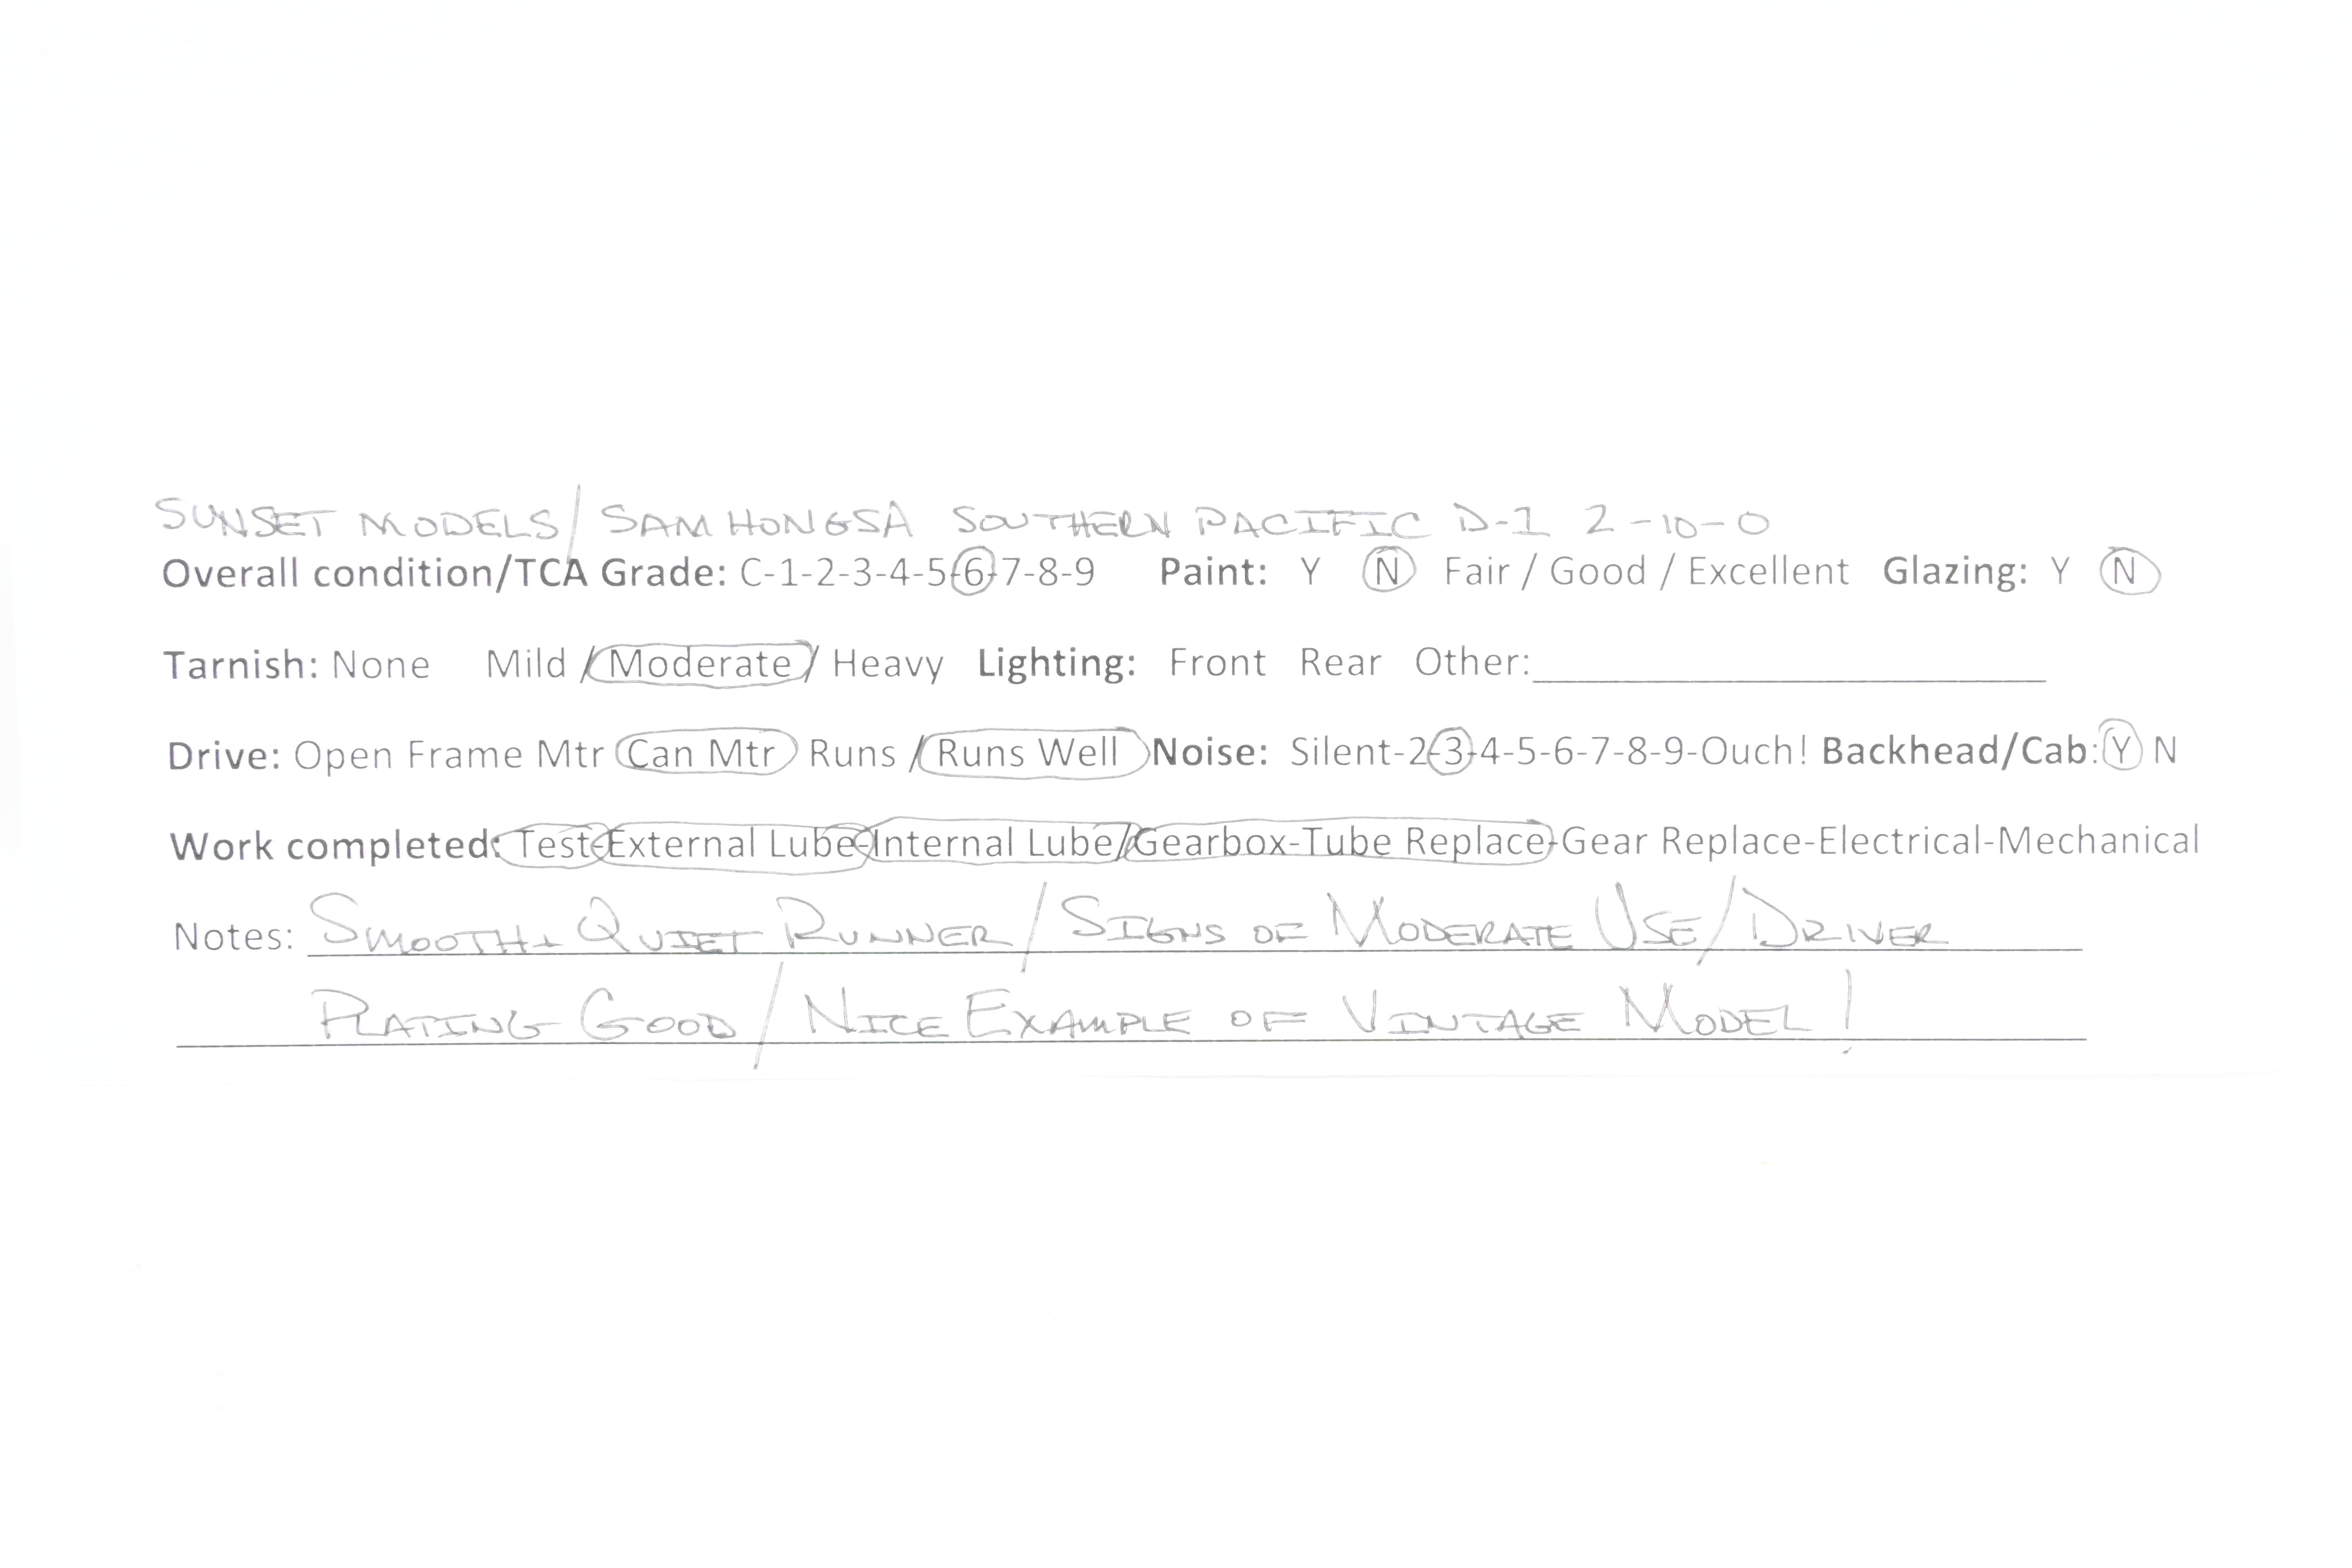 SUNSET MODELS/SAMHONGSA SOUTHERN PACIFIC D-1 2-10-0
Overall condition/TCA Grade: C-1-2-3-4-5-6-7-8-9 Paint: Y N Fair / Good / Excellent Glazing: Y N
Tarnish: None Mild / Moderate / Heavy Lighting: Front Rear Other:
Drive: Open Frame Mtr Can Mtr Runs / Runs Well Noise: Silent-2-3-4-5-6-7-8-9-Ouch! Backhead/Cab: Y N
Work completed: Test-External Lube-Internal Lube/Gearbox-Tube Replace-Gear Replace-Electrical-Mechanical
Notes: SMOOTH + QUIET RUNNER/SIGNS OF MODERATE USE/DRIVER
PLATING GOOD/NICE EXAMPLE OF VINTAGE MODEL!